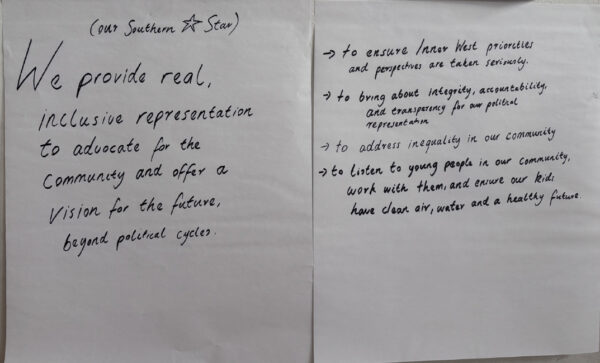 (our Southern ☆ Star)
We provide real,
inclusive representation
to advocate for the
community and offer a
vision for the future,
beyond political cycles.
→ to ensure Inner West priorities
and perspectives are taken seriously.
→ to bring about integrity, accountability,
and transparency for our political
representation
→ to address inequality in our community
→ to listen to young people in our community,
work with them, and ensure our kids
have clean air, water and a healthy future.